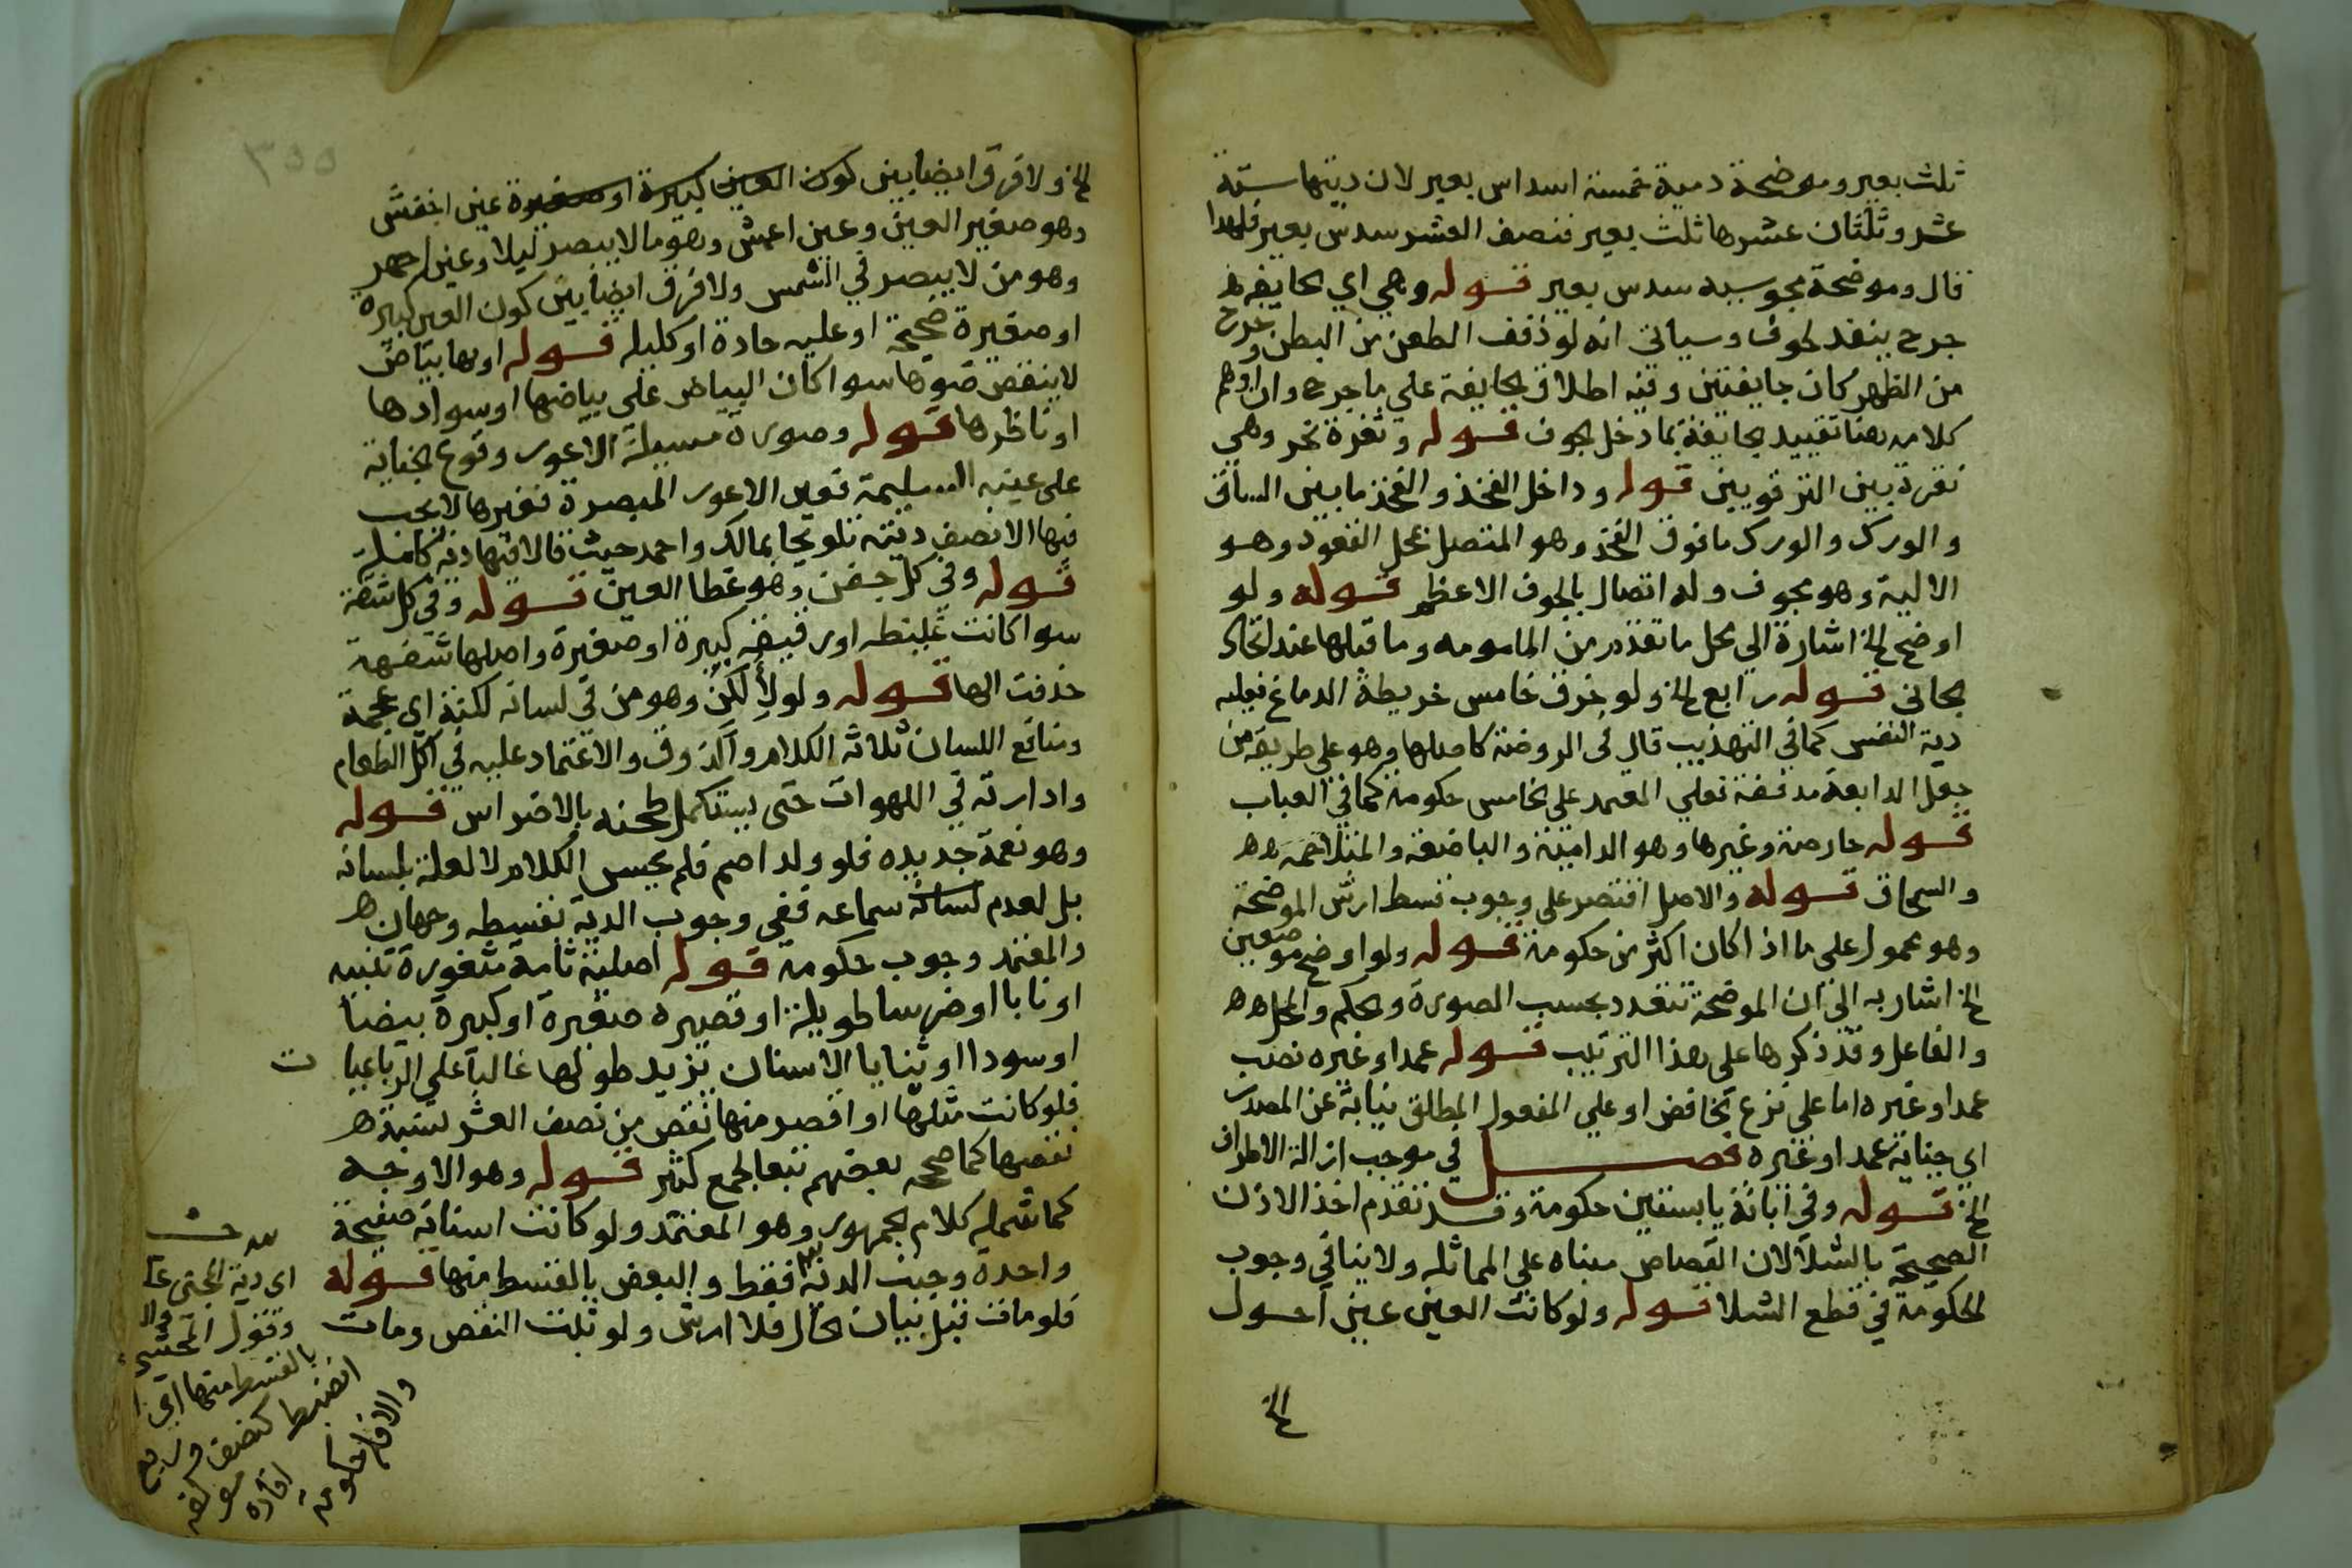 ثلث بعير وموضحة ذمية خمسة اسداس بعير لان ديتها ستة
عشر وثلثان عشرها ثلث بعير فنصف العشر سدس بعير فلهذا
قال وموضحة مجوسية سدس بعير قوله وهي اي الجايفة
جرح ينفذ لجوف وسياتي انه لو نفذت الطعن من البطن وخرج
من الظهر كان جايفتين وفيه اطلاق الجايفة على ما خرج وان اوهم
كلامه هنا تقييد الجايفة بما دخل الجوف قوله وثغرة نحر وهي
نقرة بين الترقوتين قوله وداخل الفخذ والفخذ ما بين الساق
والورك والورك ما فوق الفخذ وهو المتصل بمحل القعود وهو
الالية وهو مجوف وله اتصال بالجوف الاعظم قوله ولو
اوضح الخ اشارة الى محل ما تقدم من المامومه وما قبلها عند اتحاد
الجاني قوله رابع الخ ولو خرق خامس خريطة الدماغ فعليه
دية النفس كما في التهذيب قال في الروضة كاصلها وهو على طريقة من
جعل الدامغة مذففة فعلي المعتمد على الخامس حكومة كما في العباب
قوله حارصة وغيرها وهو الدامية والباضعة والمتلاحمة
والسمحاق قوله والاصل اقتصر على وجوب قسط ارش الموضحة
وهو محمول على ما اذا كان اكثر من حكومة قوله ولو اوضح موضعين
الخ اشار به الى ان الموضحة تتعدد بحسب الصورة والحكم والمحل
والفاعل وقد ذكرها على هذا الترتيب قوله عمدا وغيره نصب
عمدا وغيره اما على نزع الخافض او على المفعول المطلق نيابة عن المصدر
اي جناية عمد او غيره فصل في موجب ازالة الاطراف
الخ قوله وفي ابانة يابستين حكومة وقد تقدم اخذ الاذن
الصحيحة بالشلا لان القصاص مبناه على المماثله ولا ينافي وجوب
الحكومة في قطع الشلا قوله ولو كانت العين عين احول
الخ
٣٥٥
الخ ولا فرق ايضا بين كون العين كبيرة او صغيرة عين اخفش
وهو صغير العين وعين اعمش وهو ما لا يبصر ليلا وعين اجهر
وهو من لا يبصر في الشمس ولا فرق ايضا بين كون العين كبيرة
او صغيرة صحيحة او عليه حادة او كليله قوله او بها بياض
لا ينقص ضوها سوا كان البياض على بياضها او سوادها
او ناظرها قوله وصورة مسيلة الاعور وقوع الجناية
على عينه السليمة فعين الاعور المبصرة نغيرها لا يجب
فيها الا نصف دية تلويحا بمالك واحمد حيث قالا فيها دية كاملة
قوله وفي كل جفن وهو غطا العين قوله وفي كل شفة
سوا كانت غليظه او رقيقه كبيرة او صغيرة واصلها شفهة
حذفت الها قوله ولو لألكن وهو من في لسانه لكنة اي عجمة
ومنافع اللسان ثلاثة الكلام والذوق والاعتماد عليه في اكل الطعام
وادارته في اللهوات حتى يستكمل طحنه بالاضراس قوله
وهو نغمة جديده فلو ولد اصم فلم يحسن الكلام لا لعلة بلسانه
بل لعدم لسانه سماعه ففي وجوب الدية بقسطه وجهان
والمعتمد وجوب حكومة قوله اصلية تامة مثغورة ثنيه
او نابا او ضرسا طويلة او قصيره صغيرة او كبيرة بيضا
او سودا او ثنايا الاسنان يزيد طولها غالبا على الرباعيا ت
فلو كانت مثلها او اقصر منها نقص من نصف العشر بنسبة
نقصها كما صححه بعضهم تبعا لجمع كثير قوله وهو الاوجه
كما شمله كلام الجمهور وهو المعتمد ولو كانت اسنانه صفيحة
واحدة وجبت الدية فقط والبعض بالقسط منها قوله
فلو مات قبل بيان الحال فلا ارش ولو ثبت النقص ومات
اي دية المجني عليه
وقول المحشي
بالقسط منها اي ا
انضبط كنصف وربع
والا فالحكومة
افاده